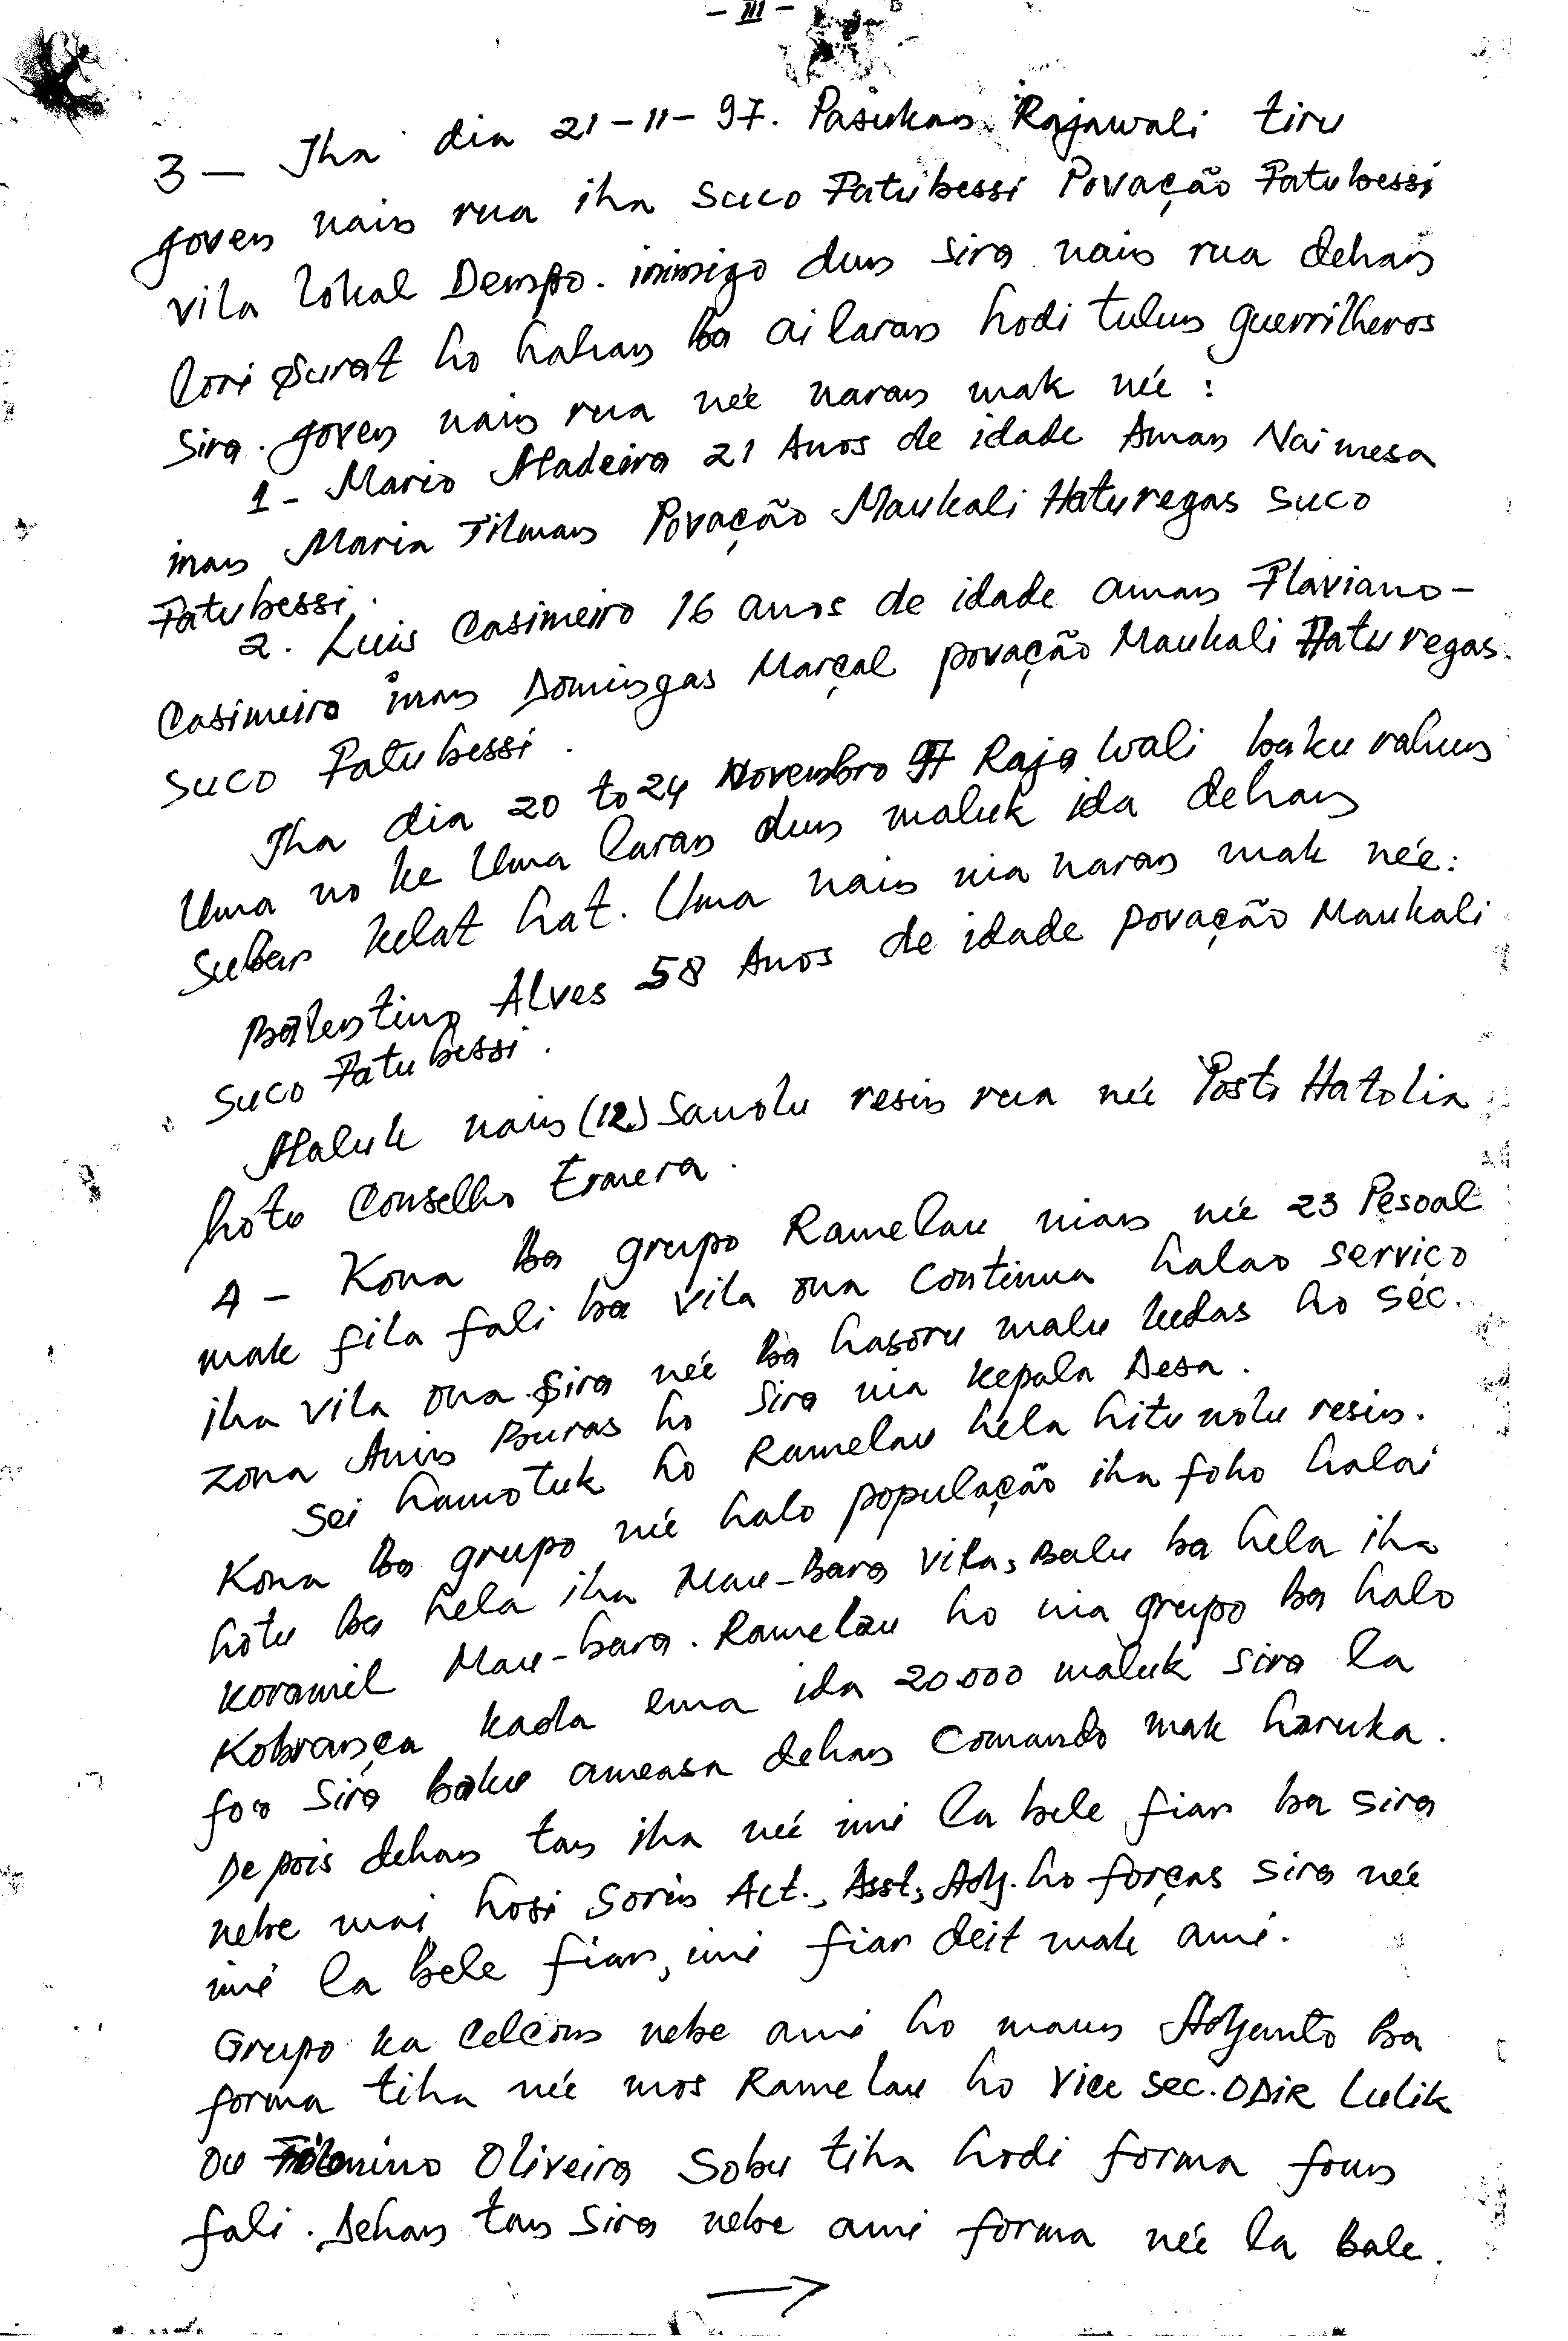 - III -
3 - Iha dia 21-11-97. Pasukan Rajawali tiru
joven nain rua iha Suco Fatubessi Povação Fatubessi
vila lokal Dempo. inimigo dun sira nain rua dehan
lori surat ho hahan ba ai laran hodi tulun guerrilheros
sira. joven nain rua née naran mak née :
1 - Mario Madeira 21 Anos de idade Aman Naimesa
inan Maria Tilman Povação Maukali Haturegas Suco
Fatubessi.
2. Luis Casimeiro 16 anos de idade aman Flaviano -
Casimeiro inan Domingas Marçal povação Maukali Haturegas.
Suco Fatubessi.
Iha dia 20 to 24 Novembro 97 Raja Wali baku rahun
Uma no ke Uma laran dun maluk ida dehan
subar kelat hat. Uma nain nia naran mak née:
Balentino Alves 58 Anos de idade povação Maukali
Suco Fatubessi.
Maluk nain (12) Sanolu resin rua née Posto Hatolia
hotu Conselho Ermera.
4 - Kona ba grupo Ramelau nian née 23 Pesoal
mak fila fali ba vila ona continua halao servico
iha vila ona. Sira née ba hasoru malu kedas ho séc.
zona Anin Buras ho sira nia kepala Desa.
Sei hamotuk ho Ramelau hela hitu nolu resin.
Kona ba grupo née halo população iha foho halai
hotu ba hela iha Mau-Bara Vila, Balu ba hela iha
koramil Mau-bara. Ramelau ho nia grupo ba halo
Kobrança kada ema ida 20.000 maluk sira la
foo sira baku ameasa dehan Comando mak haruka.
Depois dehan tan iha née imi la bele fiar ba sira
nebe mai hosi sorin Act., Asst, Adj. ho forças sira née
imi la bele fiar, imi fiar deit mak ami.
Grupo ka Celcom nebe ami ho maun Adjunto ba
forma tiha née mos Ramelau ho Vice Sec. ODIR Lulik
ou Oliveira Sobu tiha hodi forma foun
fali. Dehan tan sira nebe ami forma née la bale.